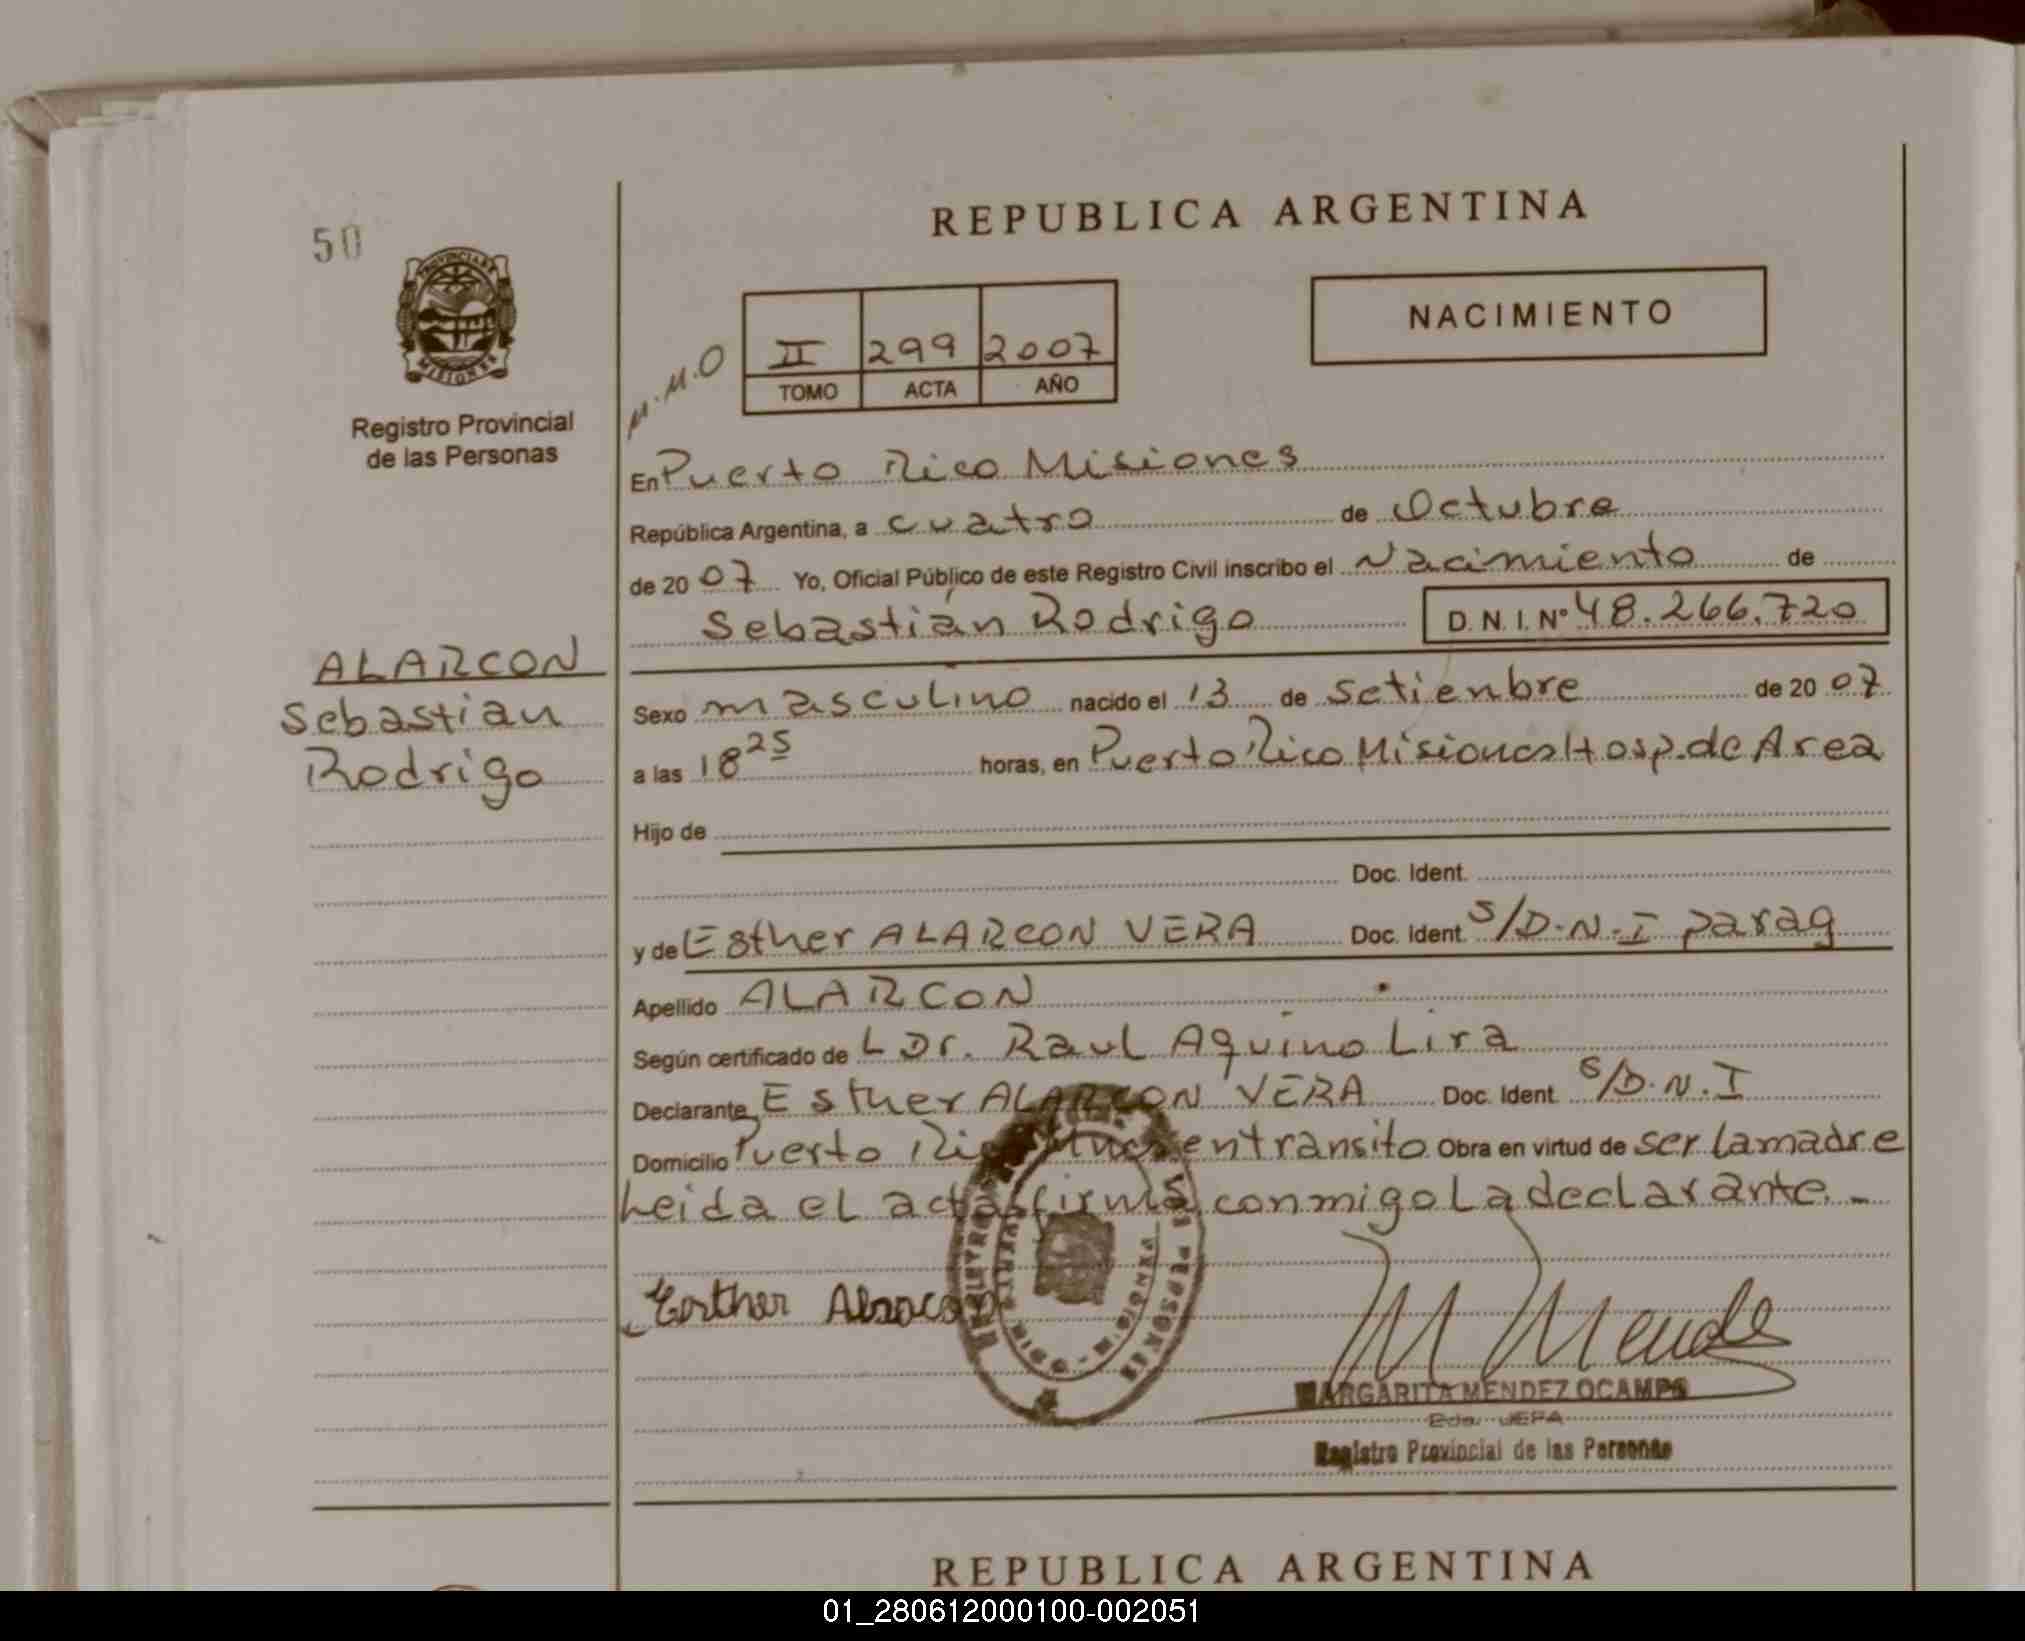 50
REPUBLICA ARGENTINA
NACIMIENTO
PROVINCIA DE
MISIONES
Registro Provincial
de las Personas
M.M.O
II 299 2007
TOMO ACTA AÑO
En Puerto Rico Misiones
República Argentina, a cuatro de Octubre
de 2007 Yo, Oficial Público de este Registro Civil inscribo el Nacimiento de
Sebastián Rodrigo D.N.I. Nº 48.266.720
ALARCON
Sebastián
Rodrigo
Sexo masculino nacido el 13 de Setienbre de 2007
a las 18 25 horas, en Puerto Rico Misiones Hosp. de Area
Hijo de
Doc. Ident.
y de Esther ALARCON VERA Doc. Ident. S/D.N.I parag
Apellido ALARCON
Según certificado de L Dr. Raul Aquino Lira
Declarante Esther ALARCON VERA Doc. Ident. S/D.N.I
Domicilio Puerto en transito Obra en virtud de ser la madre
Leida el acta firma conmigo La declarante.-
Esther
M Mende
MARGARITA MENDEZ OCAMPO
JEFA
Registro Provincial de las Personas
REPUBLICA ARGENTINA
01_280612000100-002051